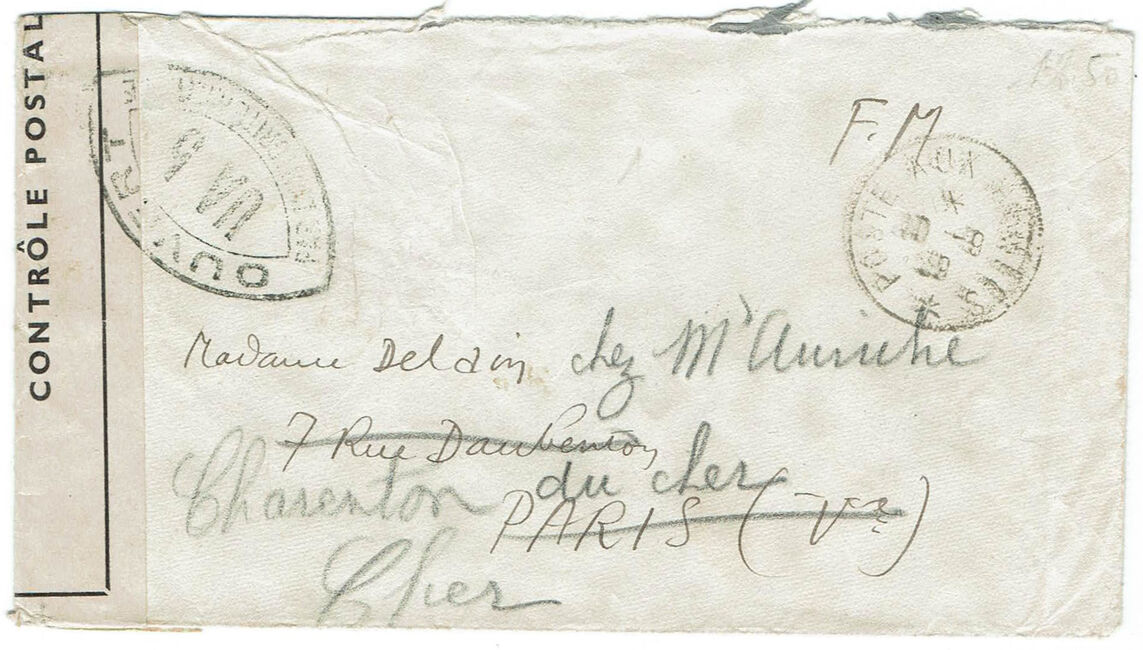 CONTRÔLE POSTAL
OUVERT
12.50
F.M
POSTE AUX ARMÉES
Madame Deldin chez Mr Auriche
7 Rue Daubenton
Charenton du cher
PARIS (Ve)
Cher